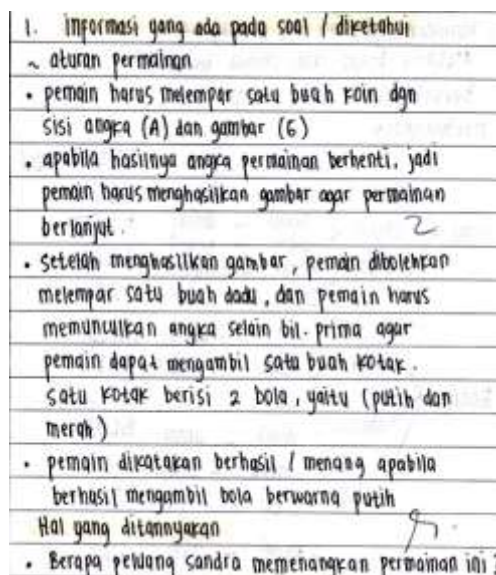 1. informasi yang ada pada soal / diketahui
~ aturan permainan
• pemain harus melempar satu buah koin dgn
sisi angka (A) dan gambar (G)
• apabila hasilnya angka permainan berhenti. jadi
pemain harus menghasilkan gambar agar permainan
berlanjut. 2
• setelah menghasilkan gambar, pemain dibolehkan
melempar satu buah dadu, dan pemain harus
memunculkan angka selain bil. prima agar
pemain dapat mengambil satu buah kotak.
satu kotak berisi 2 bola, yaitu (putih dan
merah)
• pemain dikatakan berhasil / menang apabila
berhasil mengambil bola berwarna putih
Hal yang ditannyakan
• Berapa peluang sandra memenangkan permainan ini?